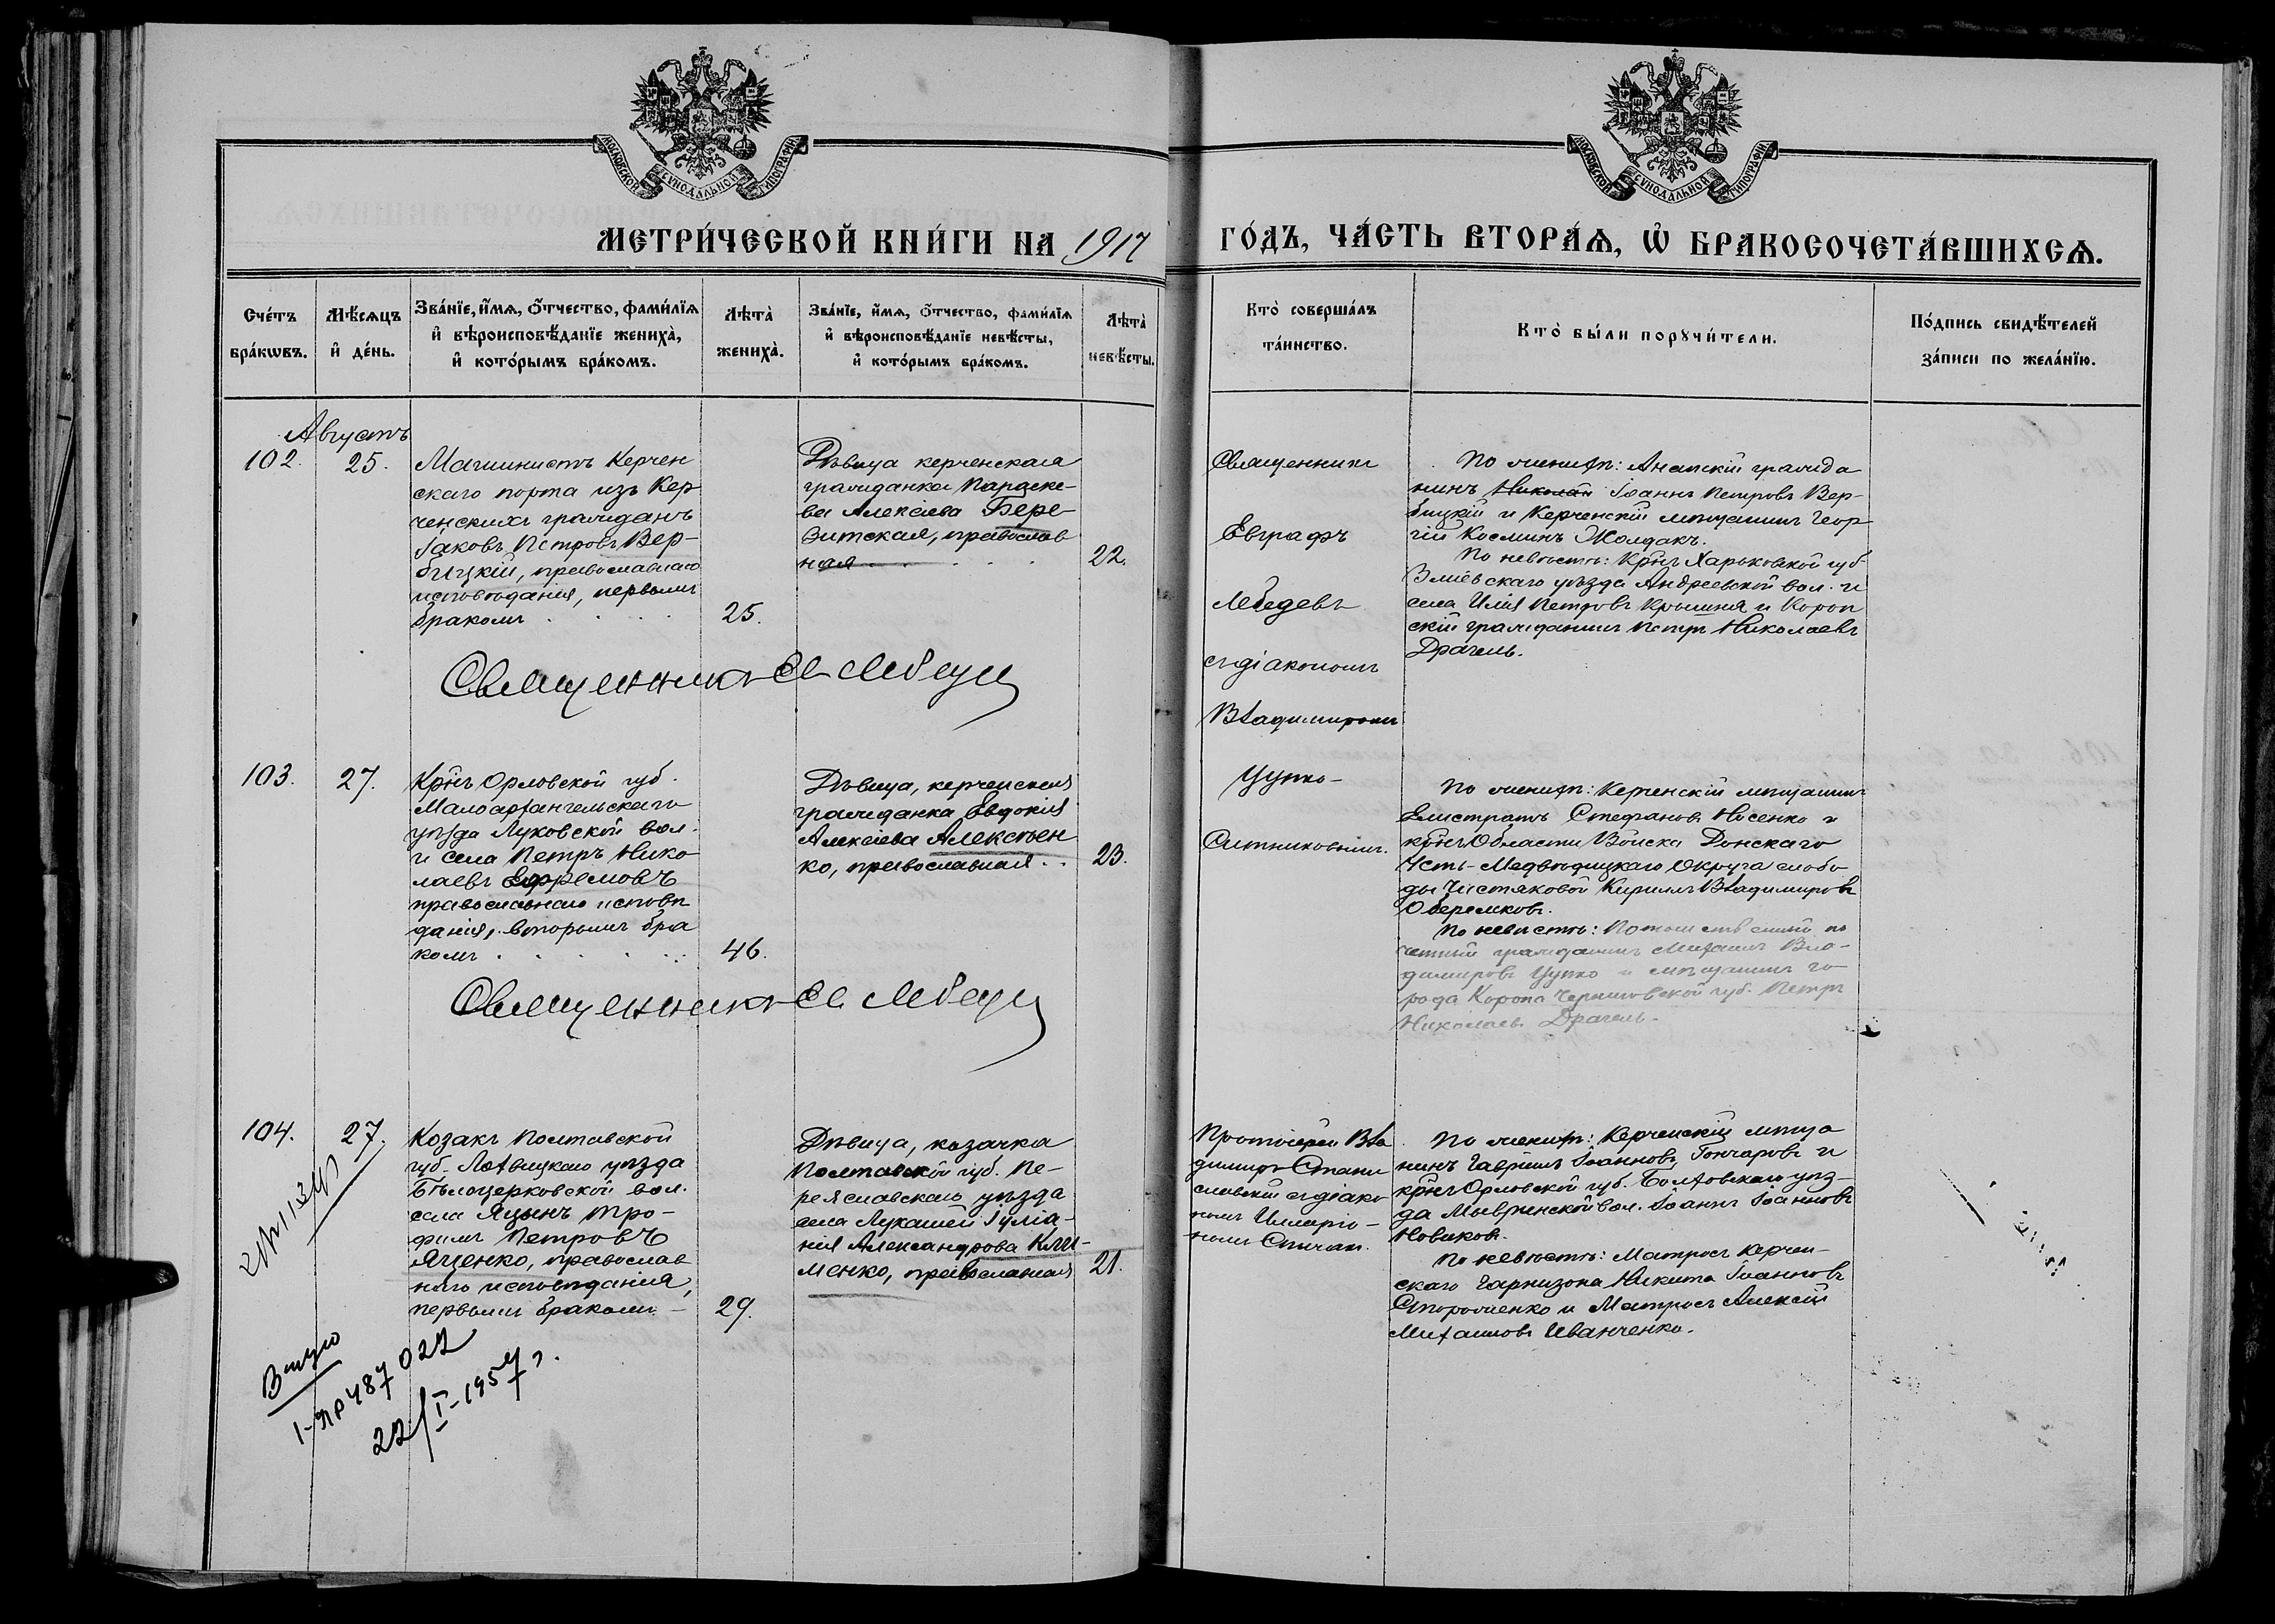 МОСКОВСКОЙ СУНОДАЛЬНОЙ ТИПОГРАФІИ
МОСКОВСКОЙ СУНОДАЛЬНОЙ ТИПОГРАФІИ
МЕТРИ́ЧЕСКОЙ КНИ́ГИ НА 1917
ГО́ДЪ, ЧА́СТЬ ВТОРА́Ѧ, Ѽ БРАКОСОЧЕТА́ВШИХСѦ.
Сче́тъ
бра́кѡвъ.
Мѣ́сѧцъ
и҆ де́нь.
Зва́нїе, и҆́мѧ, ѻ҆́тчество, фами́лїѧ
и҆ вѣроисповѣ́данїе жениха̀,
и҆ кото́рымъ бра́комъ.
Лѣта̀
жениха̀.
Зва́нїе, и҆́мѧ, ѻ҆́тчество, фами́лїѧ
и҆ вѣроисповѣ́данїе невѣ́сты,
и҆ кото́рымъ бра́комъ.
Лѣта̀
невѣ́сты.
Кто̀ соверша́лъ
та́инство.
Кто̀ бы́ли порꙋчи́тели.
По́дпись свидѣ́телей
за́писи по жела́нїю.
Августъ
102.
25.
Машинистъ Керчен
скаго порта изъ Кер
ченскихъ гражданъ
Іаковъ Петровъ Вер-
бицкій, православнаго
исповѣданія, первымъ
бракомъ
25.
Дѣвица керченская
гражданка Параске-
ва Алексѣева Бере-
витская, православ
ная
22.
Священникъ
Евграфъ
Лебедевъ
съ діакономъ
Владимиромъ
Цупко-
Ситниковымъ.
По женихѣ: Анапскій гражда
нинъ Николай Іоаннъ Петровъ Вер-
бицкій и Керченскій мѣщанинъ Геор
гій Косминъ Жолдакъ.
По невѣстѣ: Крнъ Харьковской губ
Зміевскаго уѣзда Андреевской вол. и
села Илія Петровъ Крышня и Короп
скій гражданинъ Петръ Николаевъ
Драгель.
Священникъ Ев Лебедев
103.
27.
Крнъ Орловской губ.
Малоархангельскаго
уѣзда Луковской вол.
и села Петръ Нико
лаевъ Ефремовъ
православнаго исповѣ
данія, вторымъ бра
комъ
46.
Дѣвица, керченская
гражданка Евдокія
Алексіева Алексѣен
ко, православная
23.
По женихѣ: Керченскій мѣщанинъ
Елистратъ Стефановъ Носенко и
крнъ Области Войска Донскаго
Усть-Медвѣдицкаго Округа слобо-
ды Чистяковой Кириллъ Владимировъ
Оберемковъ.
По невѣстѣ: Потомственный по
четный гражданинъ Михаилъ Вла-
димировъ Цупко и мѣщанинъ го-
рода Коропа Черниговской губ. Петръ
Николаевъ Драгель.
Священникъ Ев Лебедев
104.
27.
Козакъ Полтавской
губ. Лохвицкаго уѣзда
Бѣлоцерковской вол.
села Яцынъ Тро-
фимъ Петровъ
Яценко, православ
наго исповѣданія,
первымъ бракомъ
29.
Дѣвица, казачка
Полтавской губ. Пе-
реяславскаго уѣзда
села Лукашей Іуліа-
нія Александрова Кли-
менко, православная
21.
Протоіерей Вла
димиръ Стани
славскій съ діако
номъ Иларіо-
номъ
По женихѣ: Керченскій мѣща
нинъ Гавріилъ Іоанновъ Гончаровъ и
крнъ Орловской губ. Болховскаго уѣз-
да вол. Іоаннъ Іоанновъ
Новиковъ.
По невѣстѣ: Матросъ Керчен-
скаго Гарнизона Никита Іоанновъ
Стороженко и Матросъ Алексій
Михаиловъ Иванченко.
1-ЛР 487022
22/I-1957 г.